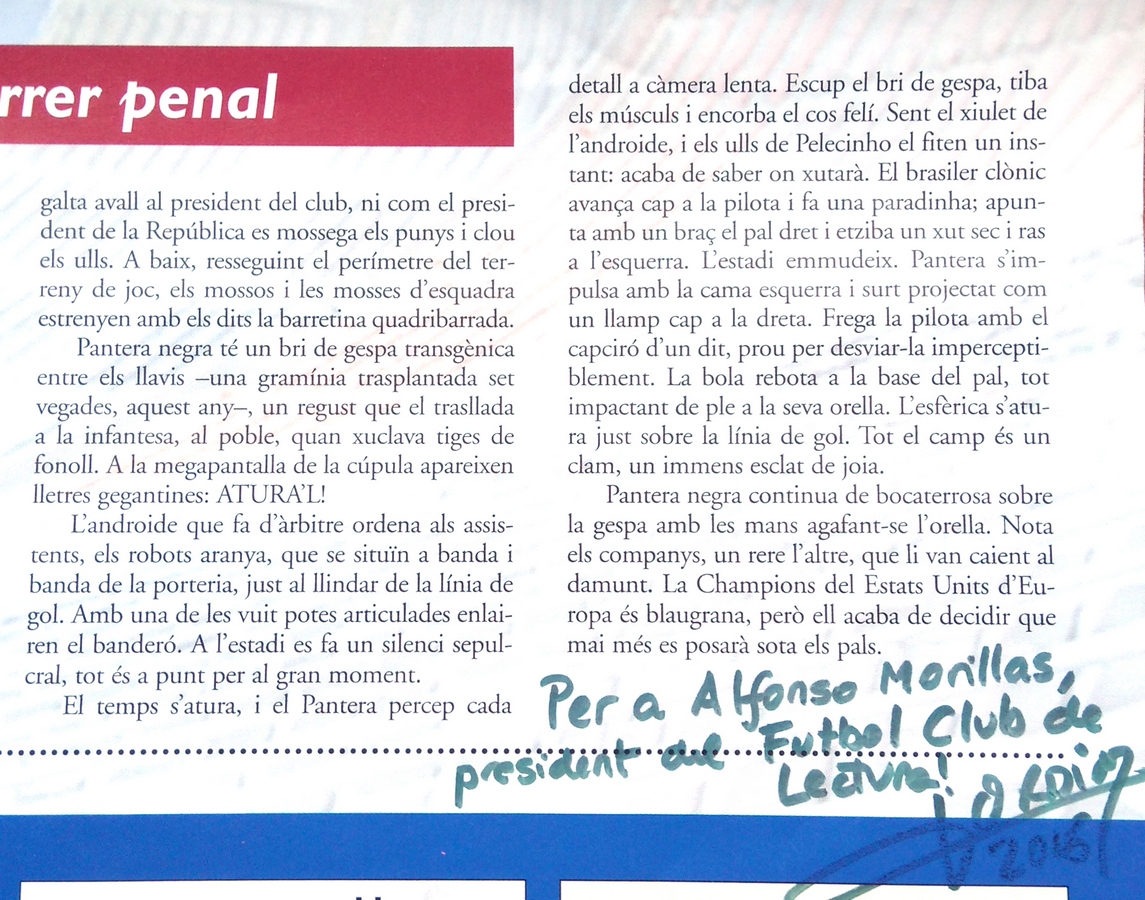 rrer penal
galta avall al president del club, ni com el presi-
dent de la República es mossega els punys i clou
els ulls. A baix, resseguint el perímetre del ter-
reny de joc, els mossos i les mosses d'esquadra
estrenyen amb els dits la barretina quadribarrada.
Pantera negra té un bri de gespa transgènica
entre els llavis –una gramínia trasplantada set
vegades, aquest any–, un regust que el trasllada
a la infantesa, al poble, quan xuclava tiges de
fonoll. A la megapantalla de la cúpula apareixen
lletres gegantines: ATURA'L!
L'androide que fa d'àrbitre ordena als assis-
tents, els robots aranya, que se situïn a banda i
banda de la porteria, just al llindar de la línia de
gol. Amb una de les vuit potes articulades enlai-
ren el banderó. A l'estadi es fa un silenci sepul-
cral, tot és a punt per al gran moment.
El temps s'atura, i el Pantera percep cada
detall a càmera lenta. Escup el bri de gespa, tiba
els músculs i encorba el cos felí. Sent el xiulet de
l'androide, i els ulls de Pelecinho el fiten un ins-
tant: acaba de saber on xutarà. El brasiler clònic
avança cap a la pilota i fa una paradinha; apun-
ta amb un braç el pal dret i etziba un xut sec i ras
a l'esquerra. L'estadi emmudeix. Pantera s'im-
pulsa amb la cama esquerra i surt projectat com
un llamp cap a la dreta. Frega la pilota amb el
capciró d'un dit, prou per desviar-la impercepti-
blement. La bola rebota a la base del pal, tot
impactant de ple a la seva orella. L'esfèrica s'atu-
ra just sobre la línia de gol. Tot el camp és un
clam, un immens esclat de joia.
Pantera negra continua de bocaterrosa sobre
la gespa amb les mans agafant-se l'orella. Nota
els companys, un rere l'altre, que li van caient al
damunt. La Champions del Estats Units d'Eu-
ropa és blaugrana, però ell acaba de decidir que
mai més es posarà sota els pals.
Per a Alfonso Morillas,
president del Futbol Club de
Lectura!